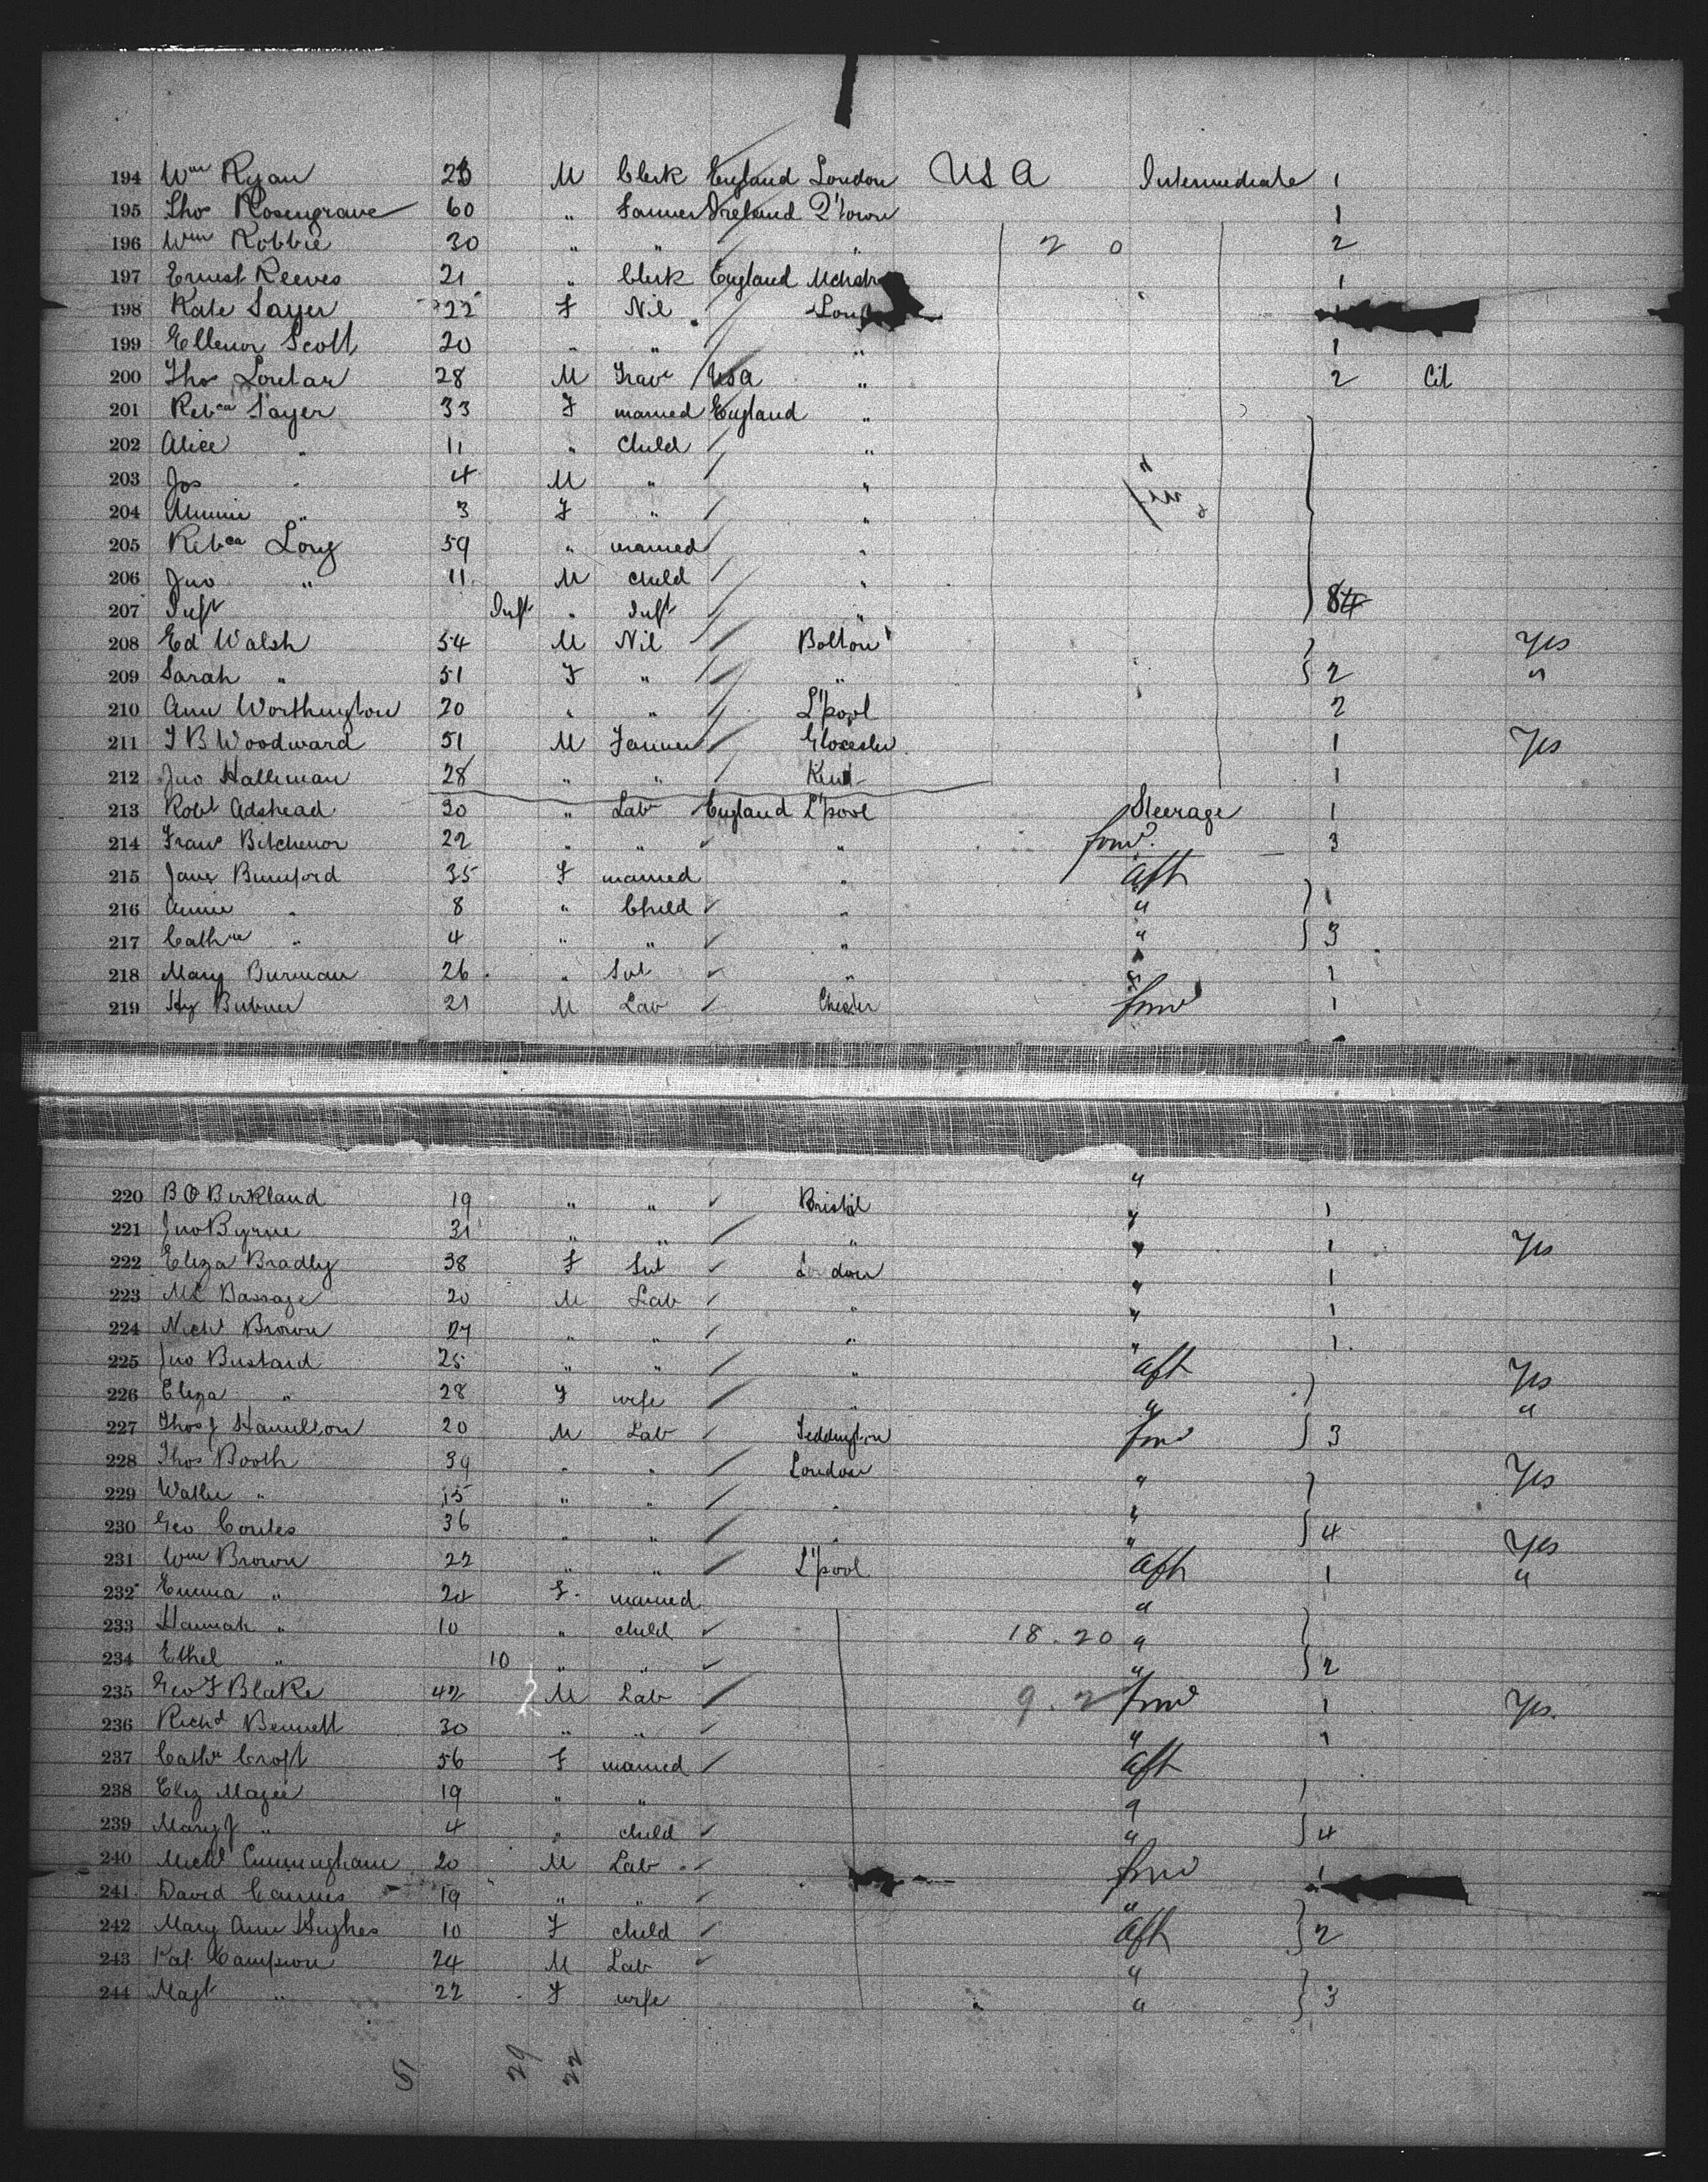 194 Wm Ryan 23 M Clerk England London USA Intermediate 1
195 Thos Rosengrave 60 " Farmer Ireland Q'town 1
196 Wm Robbie 30 " " " 2 0 2
197 Ernest Reeves 21 " Clerk England Mchstr 1
198 Kate Sayer 22 F Nil Lon
199 Ellenor Scott 20 " " " 1
200 Thos 28 M Trav USA " 2 Cit
201 Rebca Sayer 33 F married England "
202 Alice " 11 " Child "
203 Jos " 4 M " "
204 Minnie " 3 F " "
205 Rebca Long 59 " married "
206 Jno " 11 M child "
207 Inft Inft " Inft " 8
208 Ed Walsh 54 M Nil Bolton Yes
209 Sarah " 51 F " " 2 "
210 Ann Worthington 20 " " L'pool 2
211 J B Woodward 51 M Farmer Glocester 1 Yes
212 Jno Halliman 28 " " Kent 1
213 Robt Adshead 30 " Lab England L'pool Steerage 1
214 Frans Bitchenor 22 " " " forwd 3
215 Jane Bumford 35 F married " aft
216 Annie " 8 " Child " " 1
217 Cathne " 4 " " " " 3
218 Mary Burman 26 " Svt " " 1
219 Hy Bubner 21 M Lab Chester forwd 1
"
220 B O Birkland 19 " " Bristol " 1
221 Jno Byrne 31 " " " " 1 Yes
222 Eliza Bradly 38 F Svt London " 1
223 Ml Bassage 20 M Lab " " 1
224 Nichl Brown 27 " " " " 1
225 Jno Bustard 25 " " " aft Yes
226 Eliza " 28 F wife " " "
227 Thos J Hamilton 20 M Lab Teddington forwd 3
228 Thos Booth 39 " " London " Yes
229 Walter " 15 " " " "
230 Geo Coules 36 " " " " 4 Yes
231 Wm Brown 22 " " L'pool aft 1 "
232 Emma " 24 F married "
233 Hannah " 10 " child 18.20 "
234 Ethel " 10 " " " 2
235 Geo F Blake 42 M Lab 9.2 forwd 1 Yes
236 Richd Bennett 30 " " " 1
237 Cathe Croft 56 F married aft
238 Eliz Magee 19 " " "
239 Mary J " 4 " child " 4
240 Michl Cunningham 20 M Lab forwd 1
241 David Cannes 19 " " "
242 Mary Ann Hughes 10 F child aft 2
243 Pat Campion 24 M Lab "
244 Magt " 22 F wife " 3
51 29 22